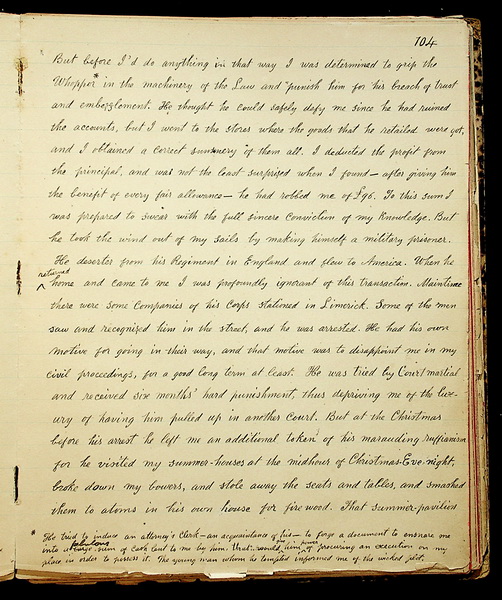 104
But before I'd do anything in that way I was determined to grip the
Whopper* in the machinery of the Law and punish him for his breach of trust
and embezzlement. He thought he could safely defy me since he had ruined
the accounts, but I went to the stores where the goods that he retailed were got,
and I obtained a correct summery of them all. I deducted the profit from
the principal, and was not the least surprized when I found — after giving him
the benefit of every fair allowance — he had robbed me of £96. To this sum I
was prepared to swear with the full sincere conviction of my knowledge. But
he took the wind out of my sails by making himself a military prisoner.
He deserted from his Regiment in England and flew to America. When he
returned
home and came to me I was profoundly ignorant of this transaction. Maintime
there were some Companies of his Corps stationed in Limerick. Some of the men
saw and recognized him in the street, and he was arrested. He had his own
motive for going in their way, and that motive was to disappoint me in my
civil proceedings, for a good long term at least. He was tried by Court martial
and received six months' hard punishment, thus depriving me of the lux-
ury of having him pulled up in another Court. But at the Christmas
before his arrest he left me an additional token of his marauding ruffianism
for he visited my summer-houses at the midhour of Christmas-Eve-night,
broke down my bowers, and stole away the seats and tables, and smashed
them to atoms in his own house for fire wood. That summer-pavilion
* He tried to induce an attorney's Clerk — an acquaintance of his — to forge a document to ensnare me
fabulous
into a large sum of Cash lent to me by him. That would him of procuring an execution on my
place in order to possess it. The young man whom he tempted informed me of the wicked plot.